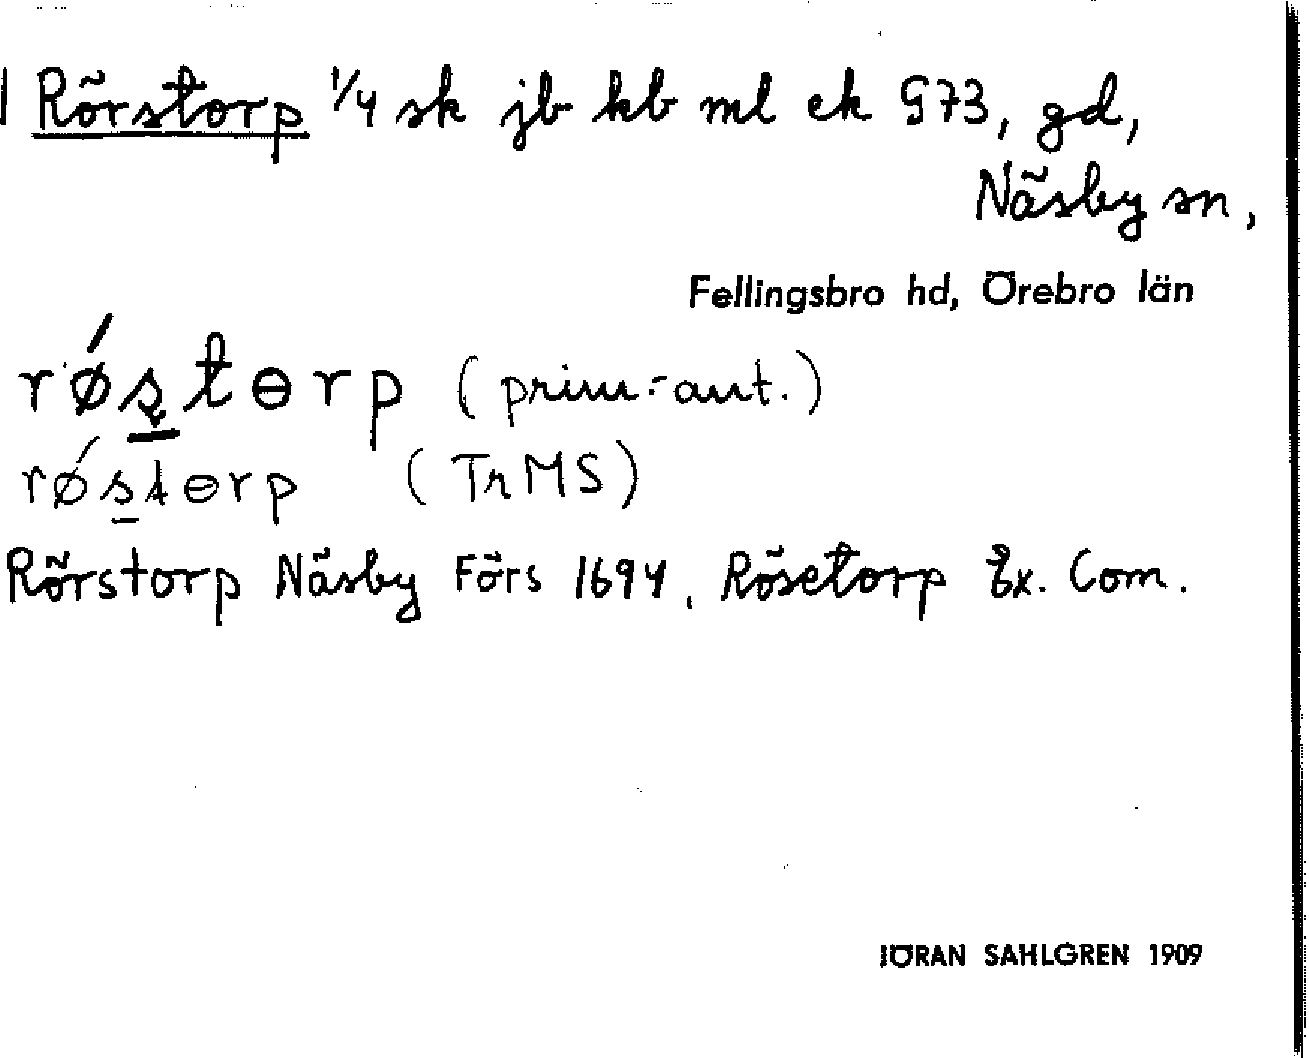 1 Rörstorp 1/4 sk jb kb ml ek G73, gd,
Näsby sn,
Fellingsbro hd, Örebro län
rǿs̲tɵrp (prim.-aut.)
rǿs̲tɵrp (TrMS)
Rörstorp Näsby Förs 1694, Rösetorp Ex. Com.
JÖRAN SAHLGREN 1909